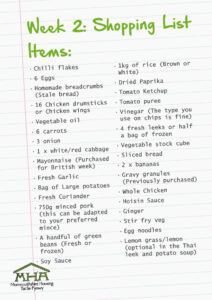 Week 2: Shopping List
Items:
· Chilli flakes
· 6 Eggs
· Homemade breadcrumbs
(Stale bread)
· 16 Chicken drumsticks
or Chicken wings
· Vegetable oil
· 6 carrots
· 3 onion
· 1 x white/red cabbage
· Mayonnaise (Purchased
for British week)
· Fresh Garlic
· Bag of Large potatoes
· Fresh Coriander
· 750g minced pork
(this can be adapted
to your preferred
mince)
· A handful of green
beans (Fresh or
frozen)
· Soy Sauce
· 1kg of rice (Brown or
White)
· Dried Paprika
· Tomato Ketchup
· Tomato puree
· Vinegar (The type you
use on chips is fine)
· 4 fresh leeks or half
a bag of frozen
· Vegetable stock cube
· Sliced bread
· 2 x bananas
· Gravy granules
(Previously purchased)
· Whole Chicken
· Hoisin Sauce
· Ginger
· Stir fry veg
· Egg noodles
· Lemon grass/lemon
(optional in the Thai
leek and potato soup)
MHA
Monmouthshire Housing